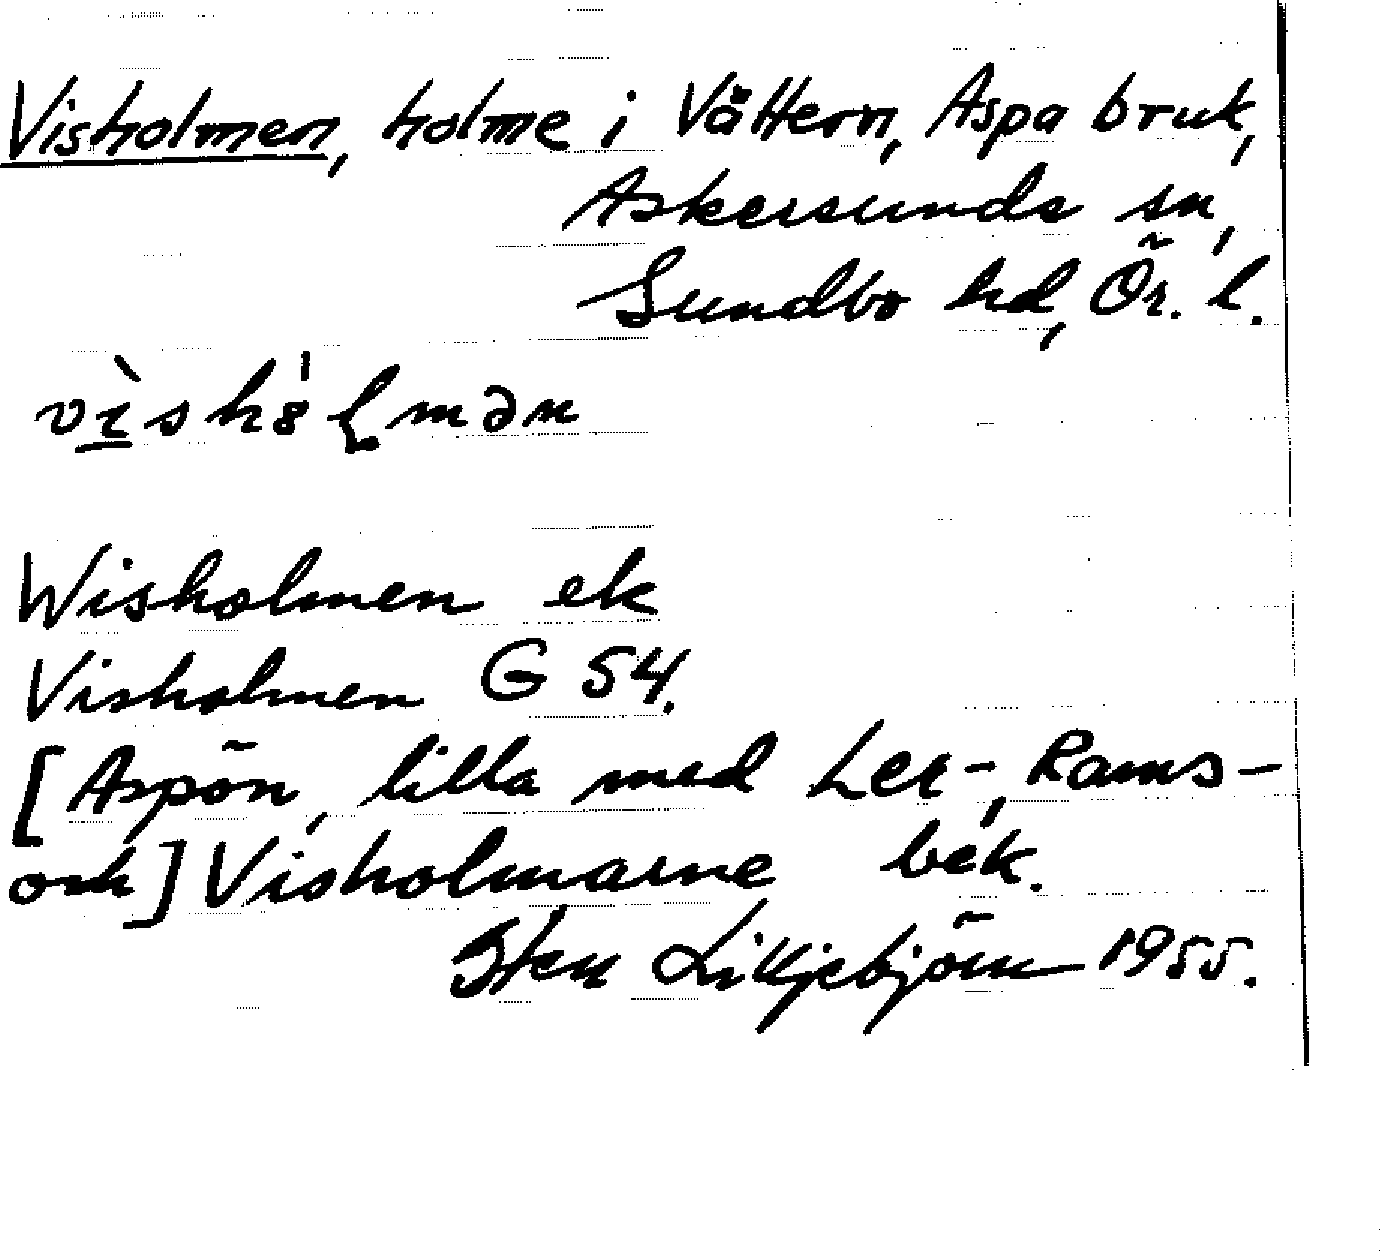 Visholmen, holme i Vättern, Aspa bruk,
Askersunds sn,
Sundbo hd, Ör. l.
Wisholmen ek
Visholmen G 54.
[Aspön, lilla med Ler-, Rams-
och] Visholmarne bek.
Sten Lilljebjörn 1955.